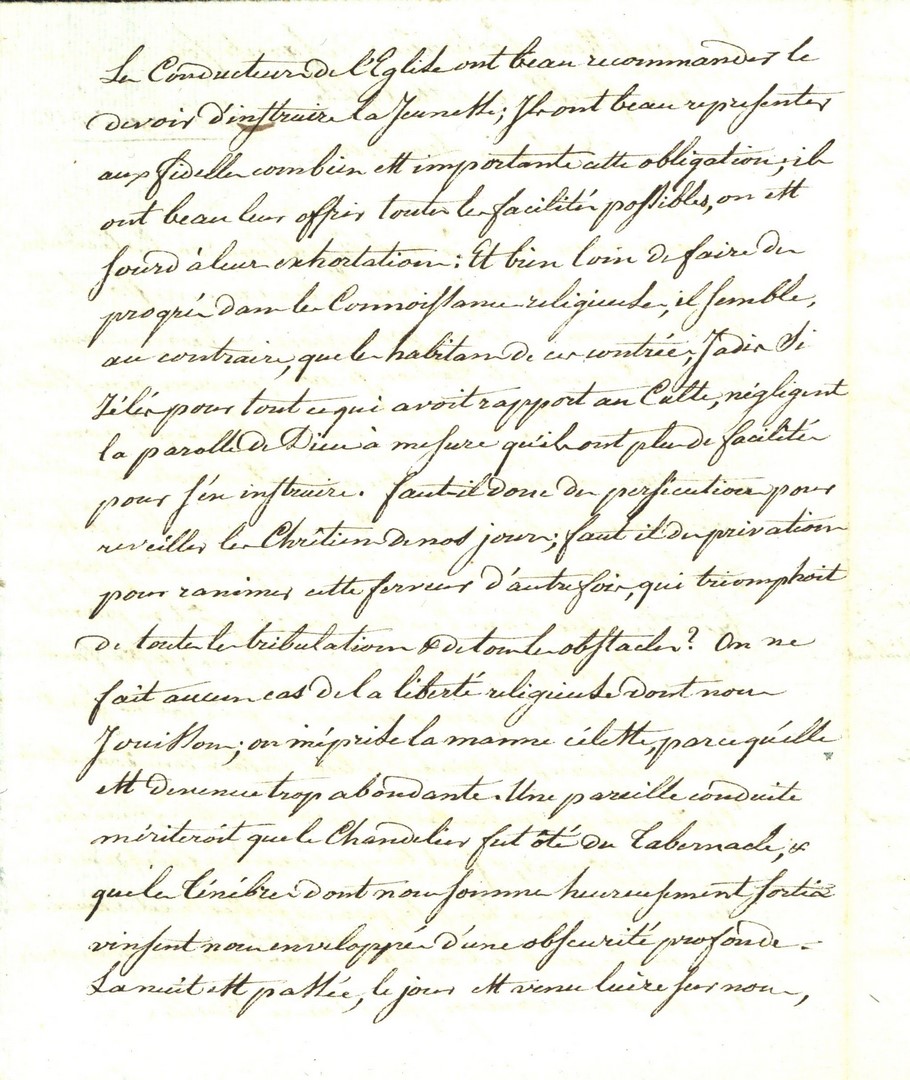 Les Conducteurs de l'Eglise ont beau recommander le
devoir d'instruire la Jeunesse; Ils ont beau representer
aux fidelles combien est importante cette obligation; ils
ont beau leur offrir toutes les facilités possibles, on est
sourd à leurs exhortations: Et bien loin de faire des
progrés dans les Connoissances religieuses, il semble,
au contraire, que les habitans de ces contrées, Jadis Si
Zélés pour tout ce qui avoit rapport au Culte, négligent
la parolle de Dieu à mesure qu'ils ont plus de facilités
pour s'én instruire. faut-il donc des persécutions pour
reveiller les Chrêtiens de nos jours; faut il des privations
pour ranimer cette ferveur d'autrefois, qui triomphoit
de toutes les tribulations & de tous les obstacles? On ne
fait aucun cas de la liberté religieuse dont nous
Jouissons; on méprise la manne céleste, parce qu'elle
est devenue trop abondante. Une pareille conduite
mériteroit que le Chandelier fut ôté du Tabernacle, &
que les Ténébres dont nous sommes heureusement sortis
vinsent nous enveloppés d'une obscurité profonde. -
La nuit est passée, le jour est venu luire sur nous,